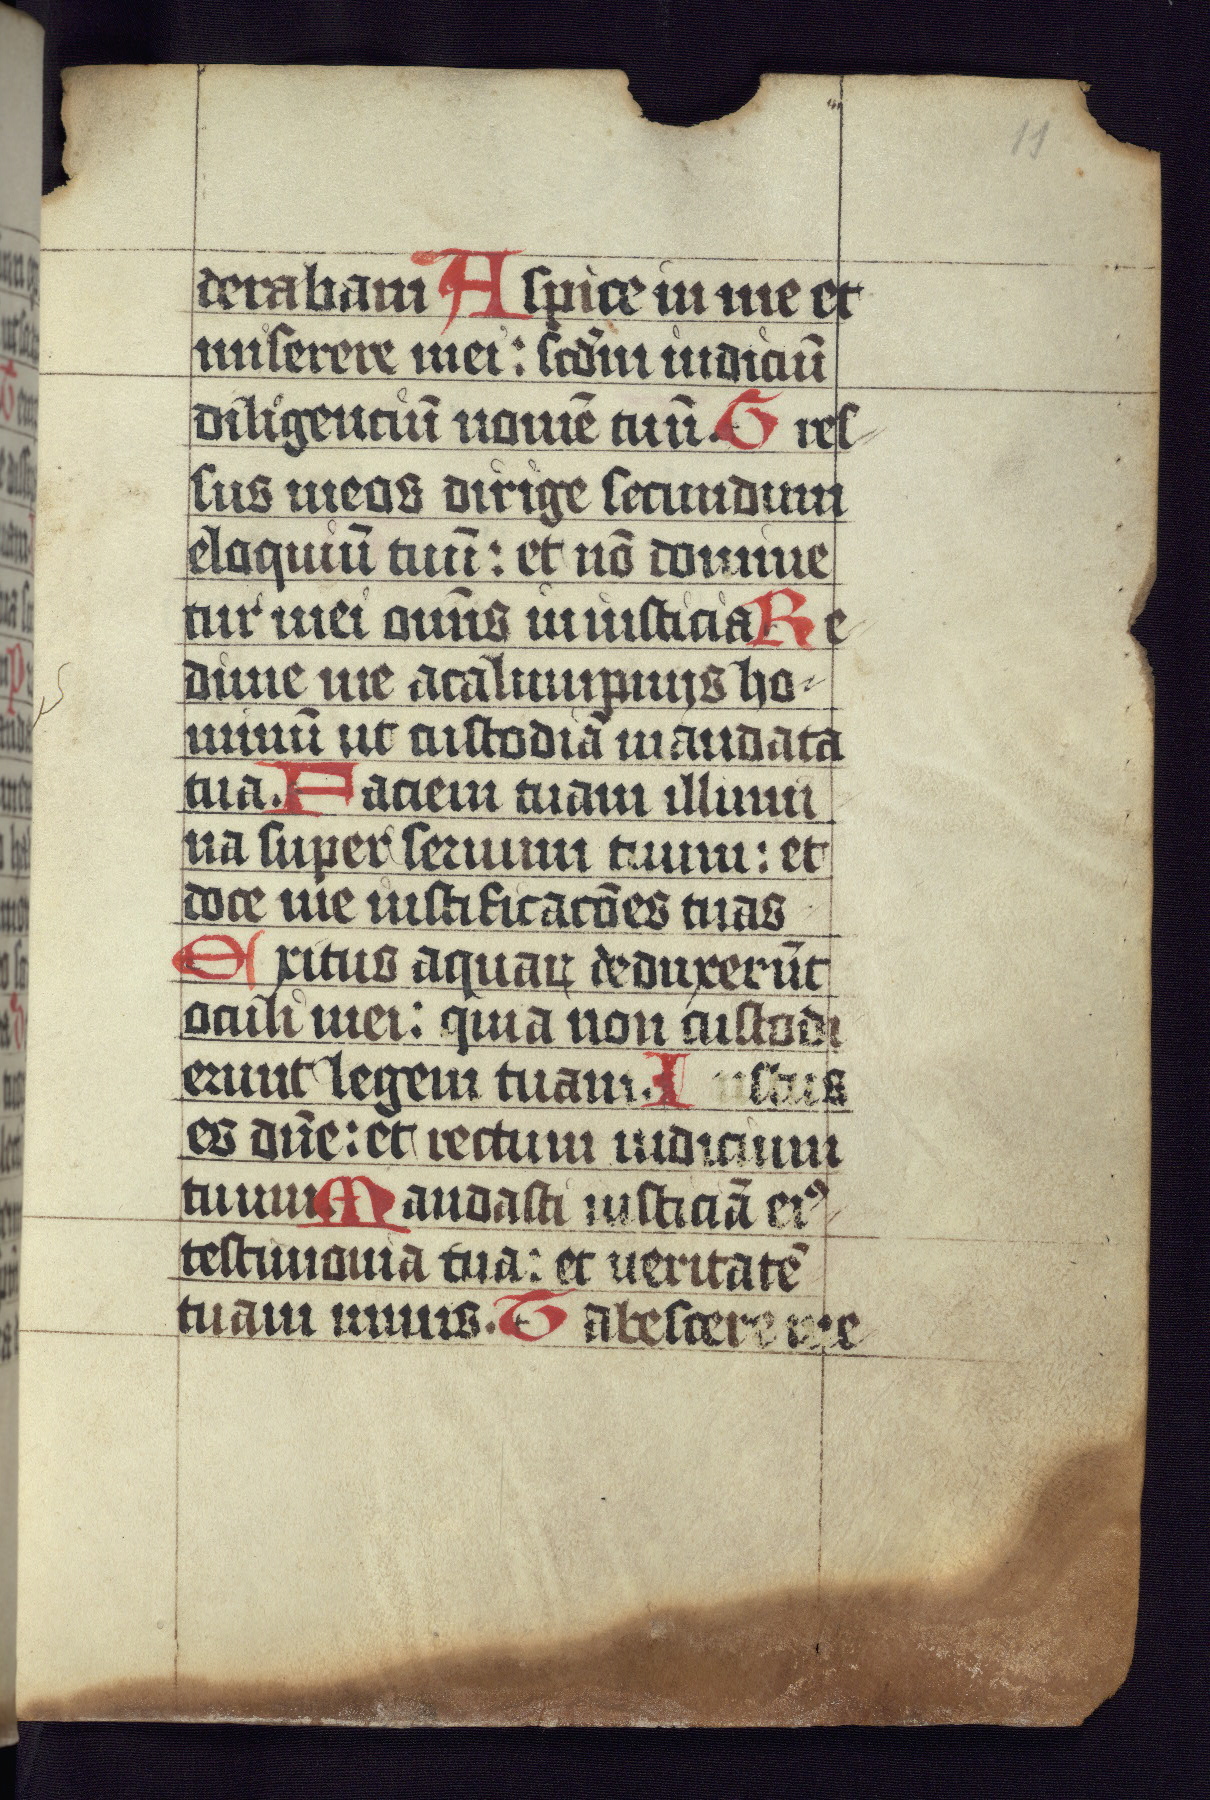 11
derabam Aspice in me et
miserere mei: scdm iudiciū
diligentiū nomē tuū. Gres
sus meos dirige secundum
eloquiū tuū: et nō domine
tur mei omīs iniusticia Re
dime me acalumpnijs ho-
minū ut custodiā mandata
tua. Faciem tuam illumi
na super seruum tuum: et
doce me iustificacōes tuas
Exitus aquaꝝ deduxerūt
oculi mei: quia non custodi
erunt legem tuam. Iustus
es dn̄e: et rectum iudicium
tuum Mandasti iusticiā
testimonia tua: et ueritatē
tuam nimis. Tabescere me